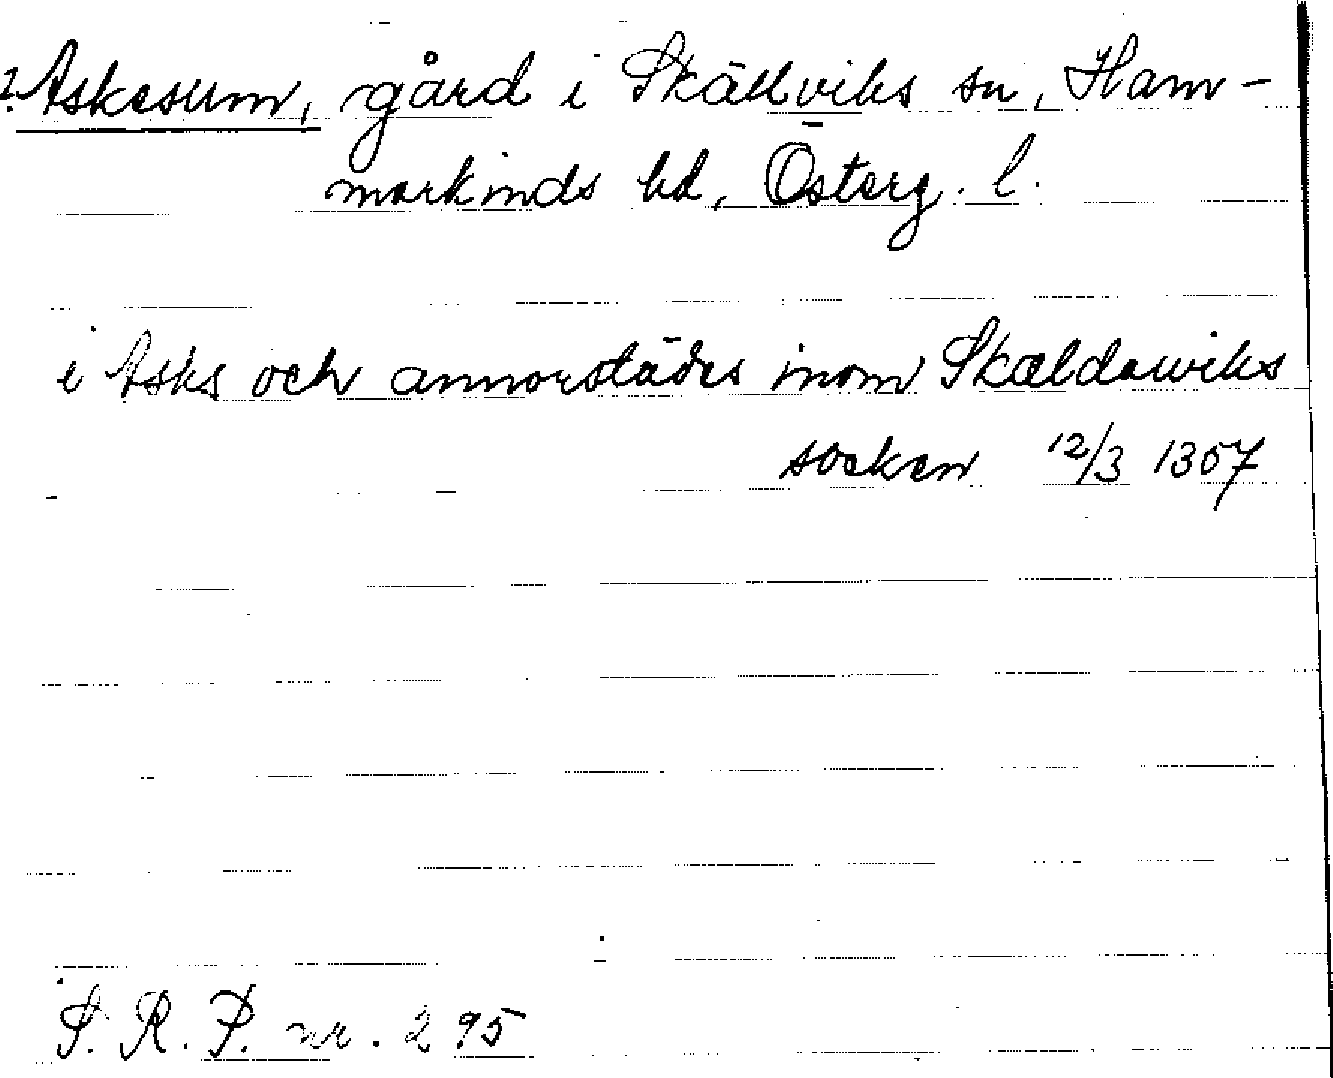 ? Askesum, gård i Skällviks sn, Ham-
markinds hd, Österg. l.
i Asks och annorstädes inom Skældawiks
socken 12/3 1357
S. R. P. nr. 295